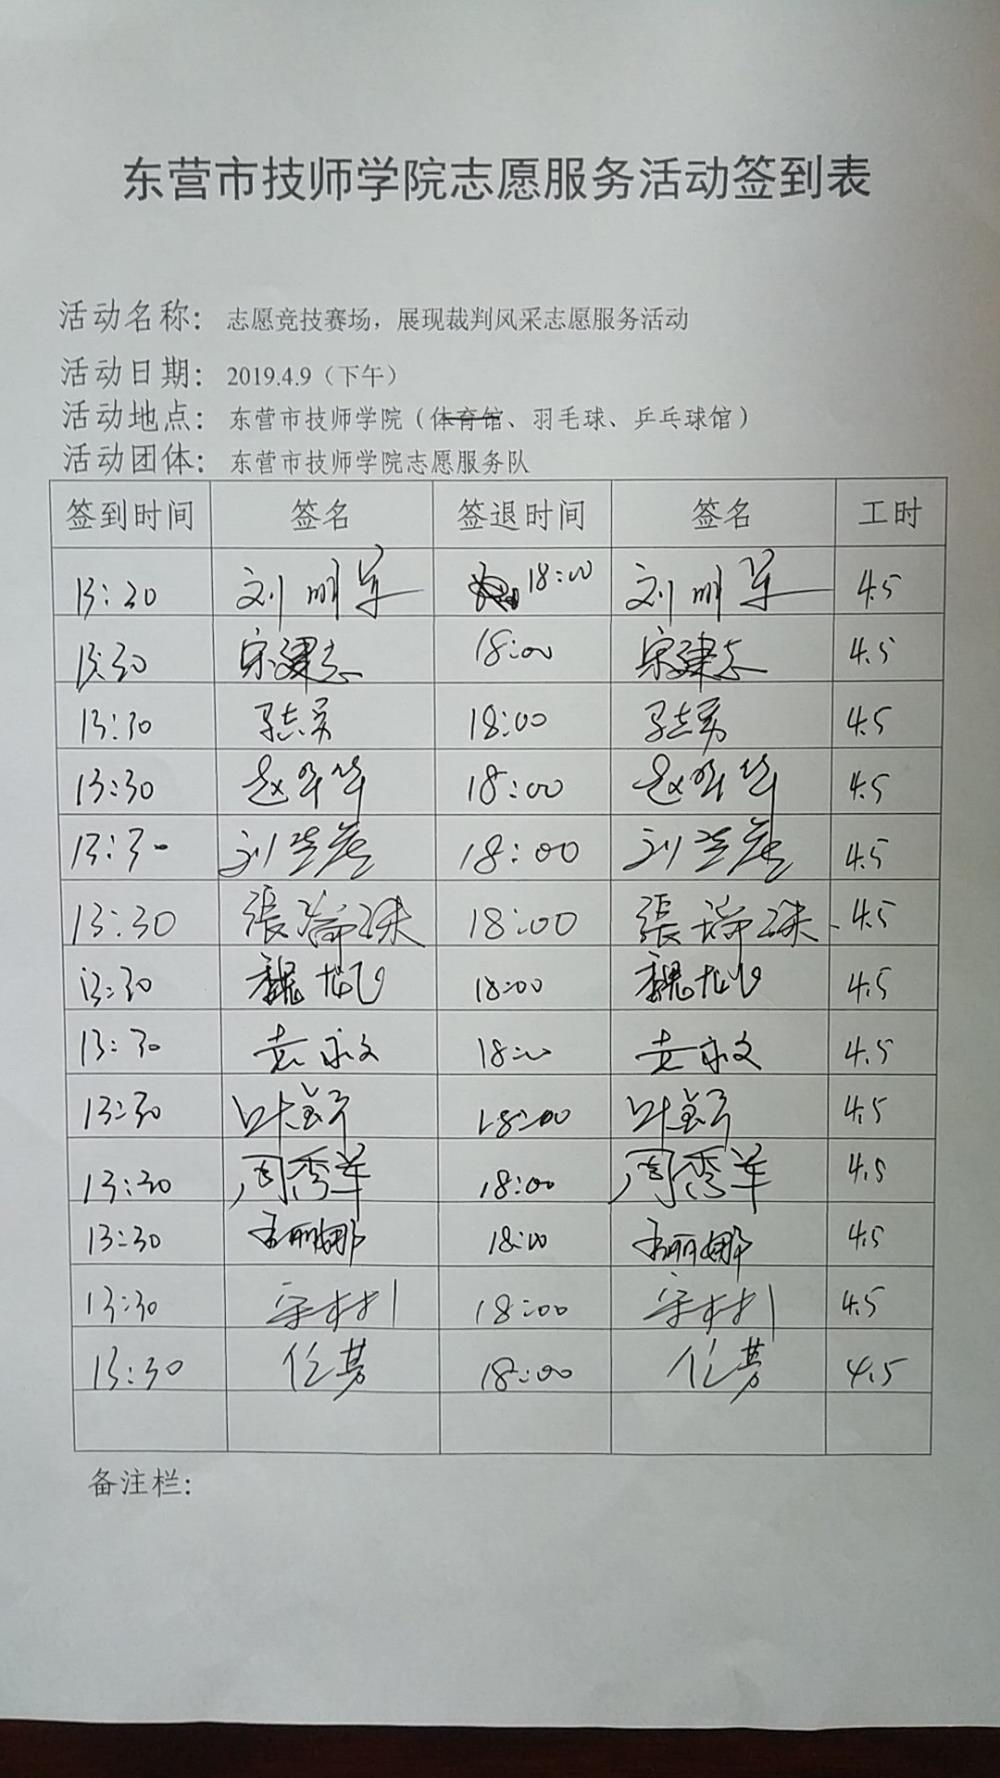 东营市技师学院志愿服务活动签到表
活动名称：志愿竞技赛场，展现裁判风采志愿服务活动
活动日期：2019.4.9（下午）
活动地点：东营市技师学院（体育馆、羽毛球、乒乓球馆）
活动团体：东营市技师学院志愿服务队
签到时间 签名 签退时间 签名 工时
13:30 刘明军 18:00 刘明军 4.5
13:30 宋建志 18:00 宋建志 4.5
13:30 18:00 4.5
13:30 赵华 18:00 赵华 4.5
13:30 刘 18:00 刘 4.5
13:30 張瑞珠 18:00 張瑞珠 4.5
13:30 魏龙飞 18:00 魏龙飞 4.5
13:30 袁永文 18:00 袁永文 4.5
13:30 叶 18:00 叶 4.5
13:30 周秀羊 18:00 周秀羊 4.5
13:30 孟丽娜 18:00 孟丽娜 4.5
13:30 宋村 18:00 宋村 4.5
13:30 任芳 18:00 任芳 4.5
备注栏：